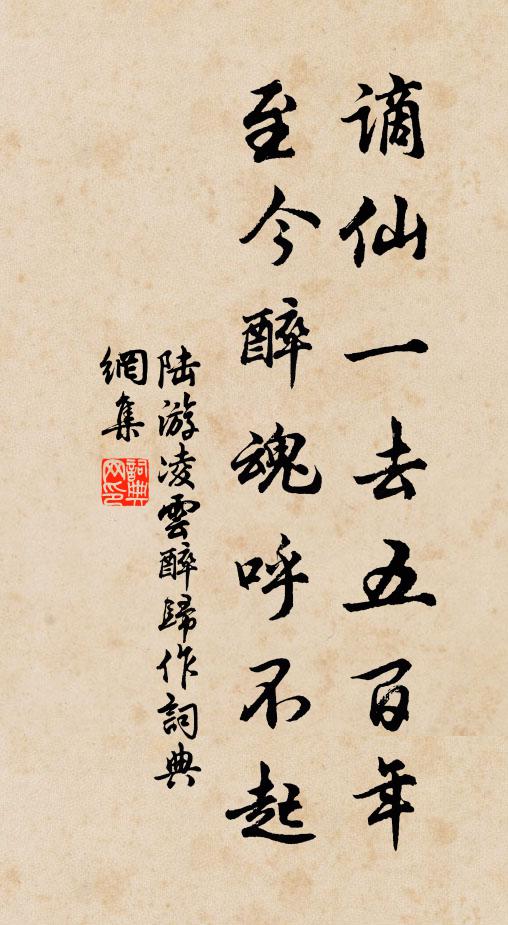 谪仙一去五百年
至今醉魂呼不起
陆游凌雲醉歸作詞典
網集
詞典
网印